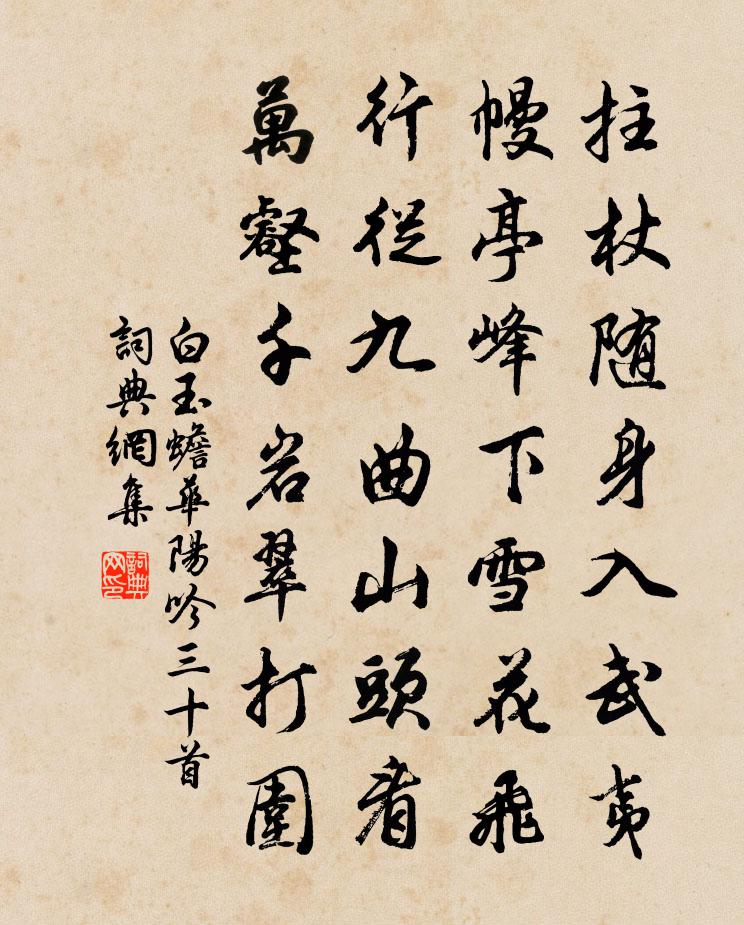 拄杖随身入武夷
幔亭峰下雪花飛
行從九曲山頭看
萬壑千岩翠打圍
白玉蟾華陽吟三十首
詞典網集
詞典网印